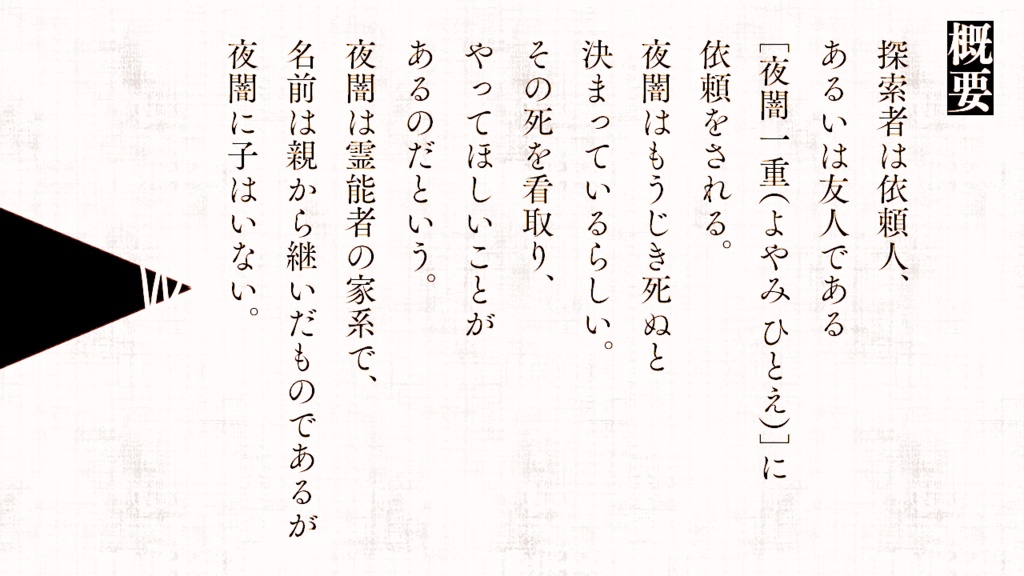 概要
探索者は依頼人、
あるいは友人である
[夜闇一重(よやみ ひとえ)]に
依頼をされる。
夜闇はもうじき死ぬと
決まっているらしい。
その死を看取り、
やってほしいことが
あるのだという。
夜闇は霊能者の家系で、
名前は親から継いだものであるが
夜闇に子はいない。